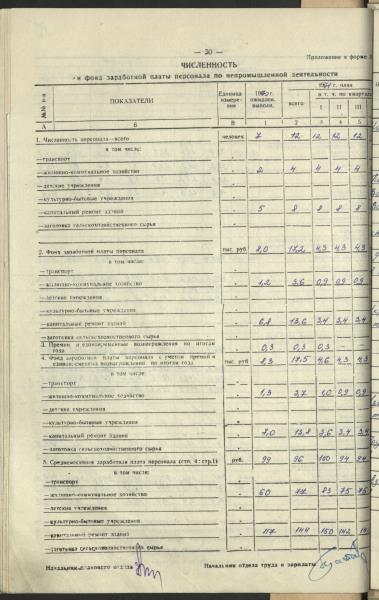 — 30 —
Приложение к форме
ЧИСЛЕННОСТЬ
и фонд заработной платы персонала по непромышленной деятельности
№№ п-п ПОКАЗАТЕЛИ Единица измерения г. ожидаем. выполн. г. план
всего в т. ч. по кварталам
I II III
А Б В 1 2 3 4 5
1. Численность персонала—всего человек 7 12 12 12 12
в том числе:
—транспорт "
—жилищно-коммунальное хозяйство " 2 4 4 4 4
—детские учреждения "
—культурно-бытовые учреждения "
—капитальный ремонт зданий " 5 8 8 8 8
—заготовка сельскохозяйственного сырья "
2. Фонд заработной платы персонала тыс. руб. 8,0 17,2 4,3 4,3 4,3
в том числе:
—транспорт "
—жилищно-коммунальное хозяйство " 1,2 3,6 0,9 0,9 0,9
—детские учреждения "
—культурно-бытовые учреждения "
—капитальный ремонт зданий " 6,8 13,6 3,4 3,4 3,4
—заготовка сельскохозяйственного сырья "
3. Премии и единовременные вознаграждения по итогам года " 0,3 0,3 0,3
4. Фонд заработной платы персонала с учетом премий и единовременных вознаграждений по итогам года тыс. руб. 8,3 17,5 4,6 4,3 4,3
в том числе:
—транспорт "
—жилищно-коммунальное хозяйство " 1,3 3,7 1,0 0,9 0,9
—детские учреждения "
—культурно-бытовые учреждения "
—капитальный ремонт зданий " 7,0 13,8 3,6 3,4 3,4
—заготовка сельскохозяйственного сырья "
5. Среднемесячная заработная плата персонала (стр. 4 : стр.1) руб. 99 96 100 94 94
в том числе:
—транспорт "
—жилищно-коммунальное хозяйство " 60 77 83 75 75
—детские учреждения "
—культурно-бытовые учреждения "
—капитальный ремонт зданий " 117 144 150 142
—заготовка сельскохозяйственного сырья "
Начальник планового отдела
Начальник отдела труда и зарплаты